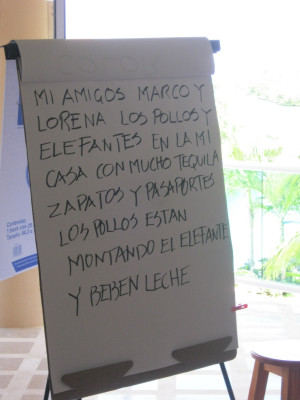 MI AMIGOS MARCO Y
LORENA LOS POLLOS Y
ELEFANTES EN LA MI
CASA CON MUCHO TEQUILA
ZAPATOS Y PASAPORTES
LOS POLLOS ESTAN
MONTANDO EL ELEFANTE
Y BEBEN LECHE